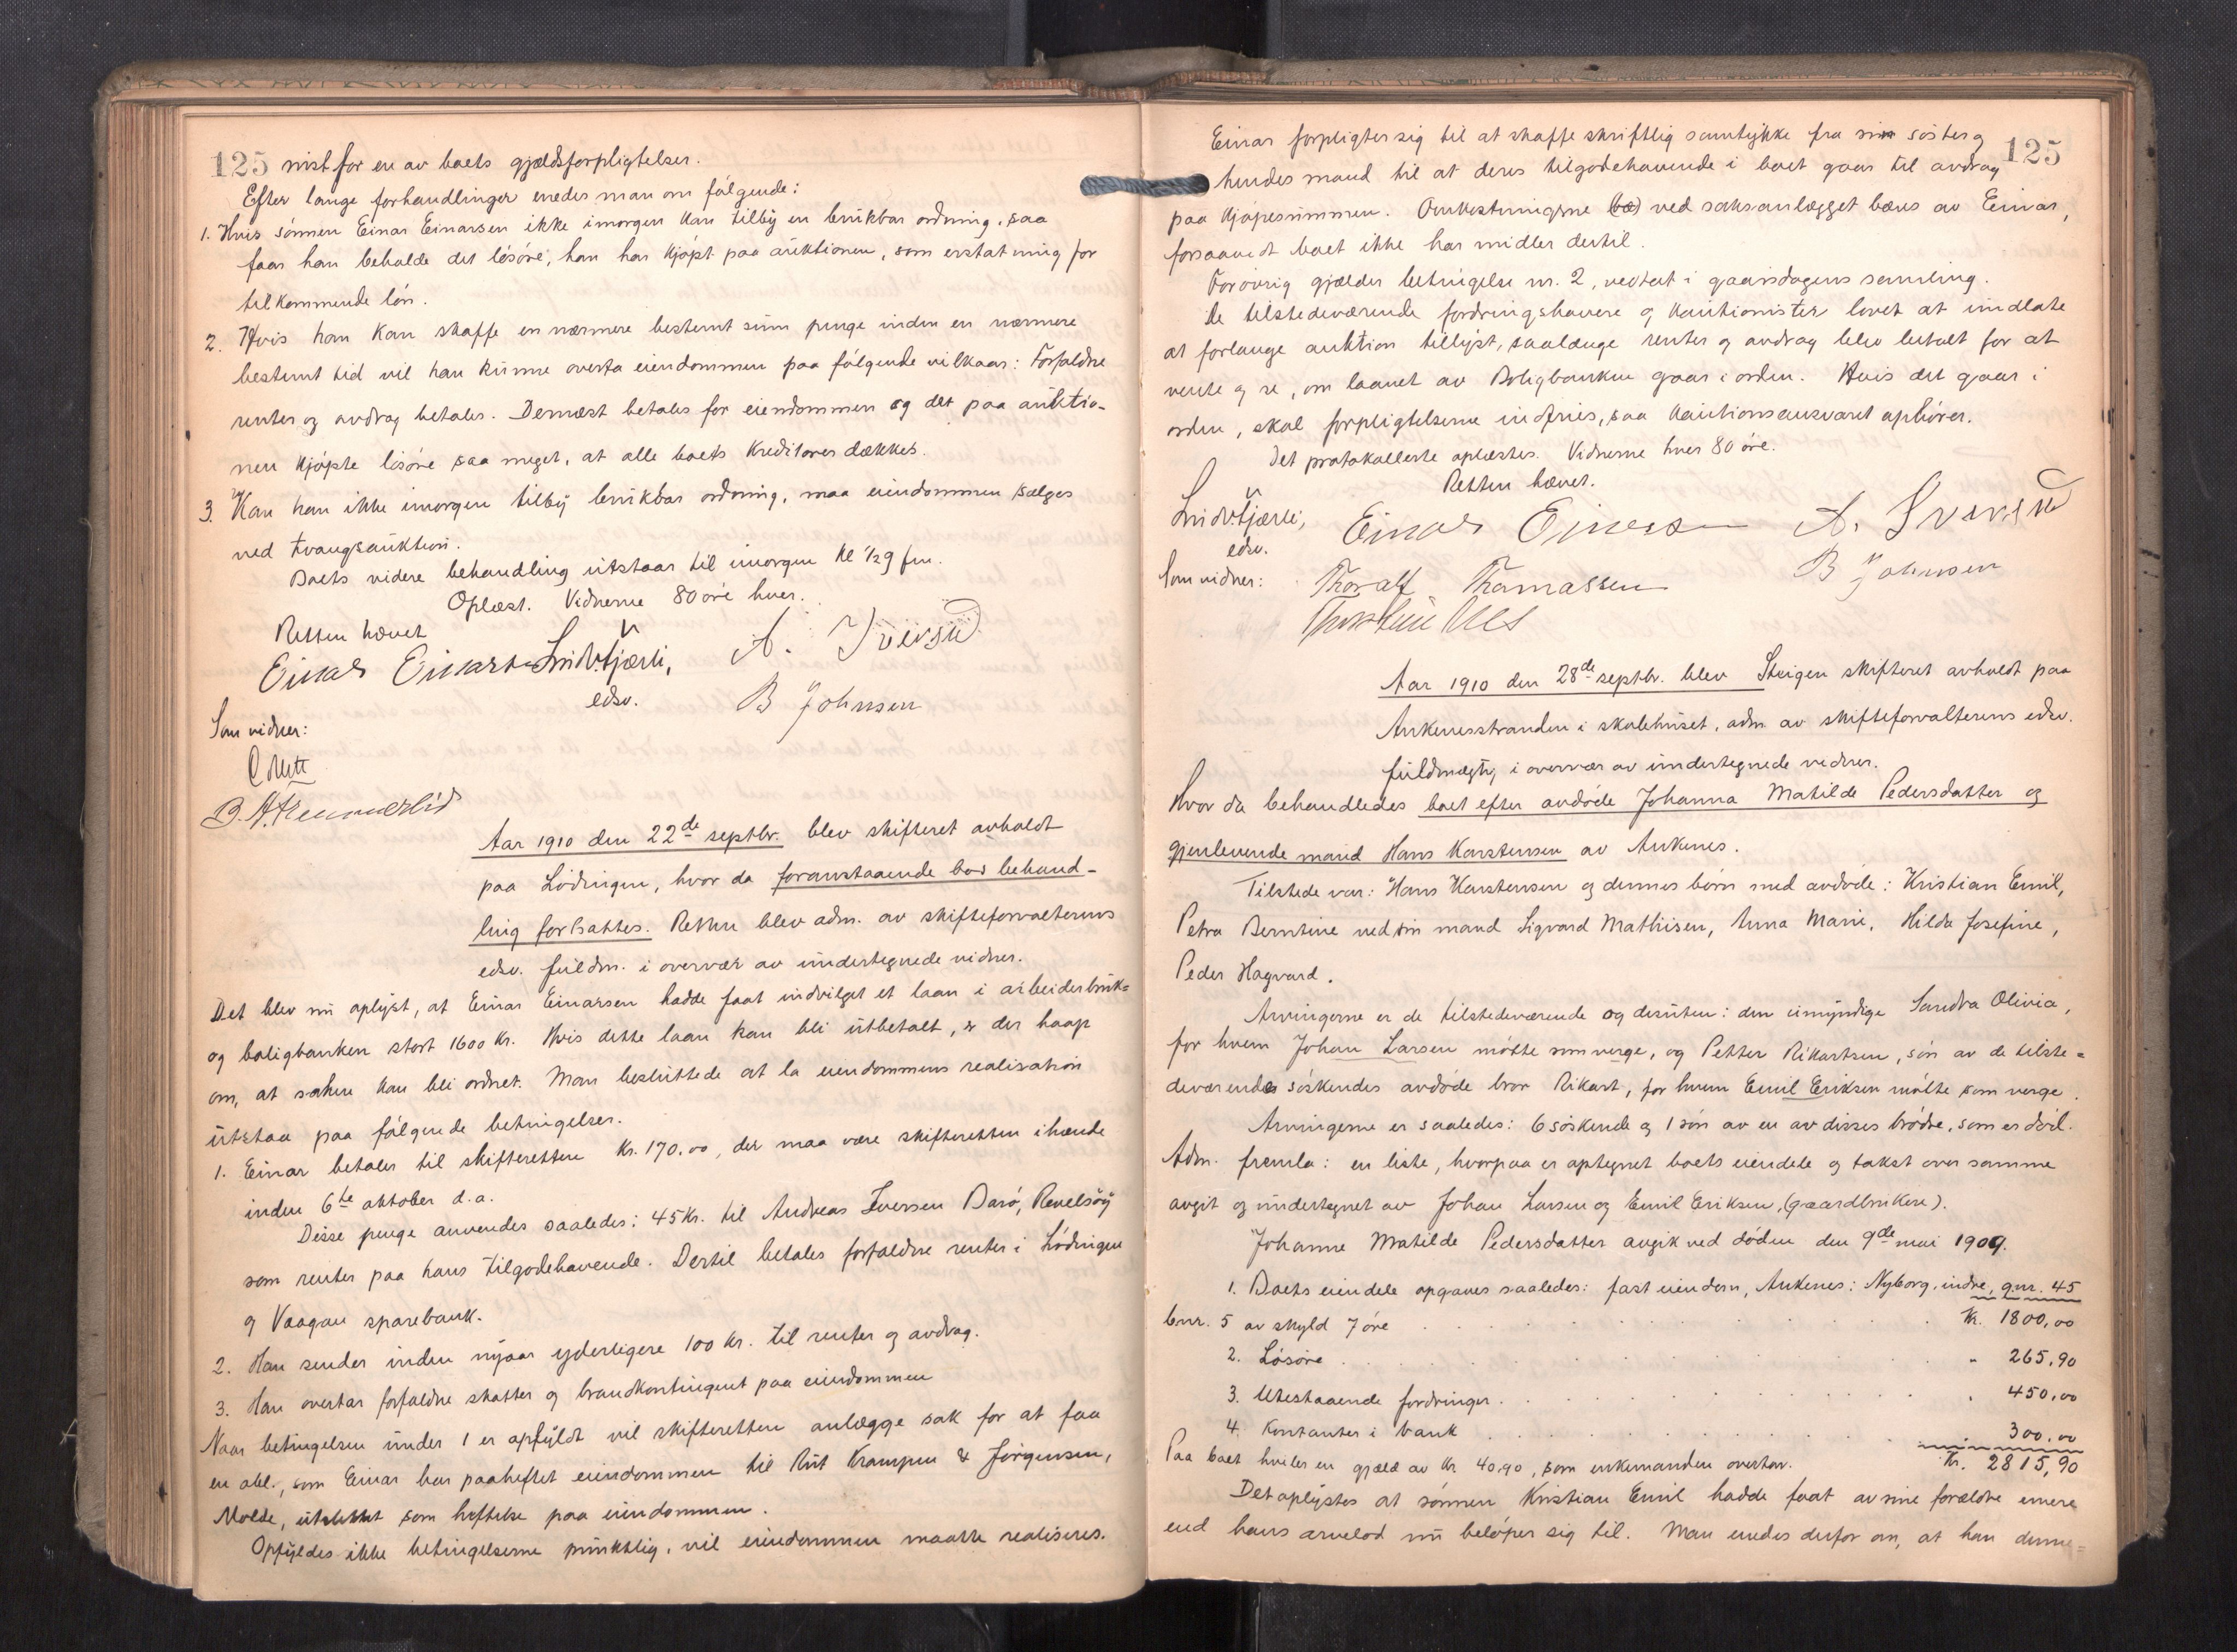 125 nist for en av boets gjældsforpligtelser.
Efter lange forhandlinger enedes man om følgende:
1. Hvis sønnen Einar Einarsen ikke imorgen kan tilby en brukbar ordning, saa
faar han beholde det løsøre, han har kjøpt paa auktionen, som erstatning for
tilkommende løn.
2. Hvis han kan skaffe en nærmere bestemt sum penge inden en nærmere
bestemt tid vil han kunne overta eiendommen paa følgende vilkaar: Forfaldne
renter og avdrag betales. Dernæst betales for eiendommen og det paa auktio-
nen kjøpte løsøre saa meget, at alle boets kreditorer dækkes.
3. Kan han ikke imorgen tilby brukbar ordning, maa eiendommen sælges
ved tvangsauktion.
Boets videre behandling utstaar til imorgen kl 1/2 9 fm.
Oplæst. Vidnerne 80 øre hver.
Retten hævet
Einar Einarsen Lindv. Fjærli, A. Iversen
edsv. B Johnsen
Som vidner:
Collett
B. Hremmerlid
Aar 1910 den 22de septbr. blev skifteret avholdt
paa Lødingen, hvor da foranstaaende bos behand-
ling fortsattes. Retten blev adm. av skifteforvalterens
edsv. fuldm. i overvær av undertegnede vidner.
Det blev nu oplyst, at Einar Einarsen hadde faat indvilget et laan i arbeiderbruk=
og boligbanken stort 1600 kr. Hvis dette laan kan bli utbetalt, er der haap
om, at saken kan bli ordnet. Man besluttede at la eiendommens realisation
utstaa paa følgende betingelser.
1. Einar betaler til skifteretten kr. 170.00, der maa være skifteretten ihænde
inden 6te oktober d.a.
Disse penge anvendes saaledes: 45 kr. til Andreas Iversen Barø, Revelsøy
som renter paa hans tilgodehavende. Dertil betales forfaldne renter i Lødingen
og Vaagan sparebank.
2. Han sender inden nyaar yderligere 100 kr. til renter og avdrag.
3. Han overtar forfaldne skatter og brandkontingent paa eiendommen
Naar betingelsen under 1 er opfyldt vil skifteretten anlægge sak for at faa
en obl., som Einar har paaheftet eiendommen til Rut Krampen & Jørgensen,
Molde, utslettet som heftelse paa eiendommen.
Opfyldes ikke betingelserne punktlig, vil eiendommen maatte realiseres.
125
Einar forpligter sig til at skaffe skriftlig samtykke fra sin søster og
hendes mand til at deres tilgodehavende i boet gaar til avdrag
paa kjøpesummen. Omkostningerne (bæ) ved saksanlægget bæres av Einar,
forsaavidt boet ikke har midler dertil.
Forøvrig gjælder betingelse nr. 2, vedtat i gaarsdagens samling.
De tilstedeværende fordringshavere og kautionister lovet at undlate
at forlange auktion tillyst, saalænge renter og avdrag blev betalt for at
vente og se, om laanet av Boligbanken gaar i orden. Hvis det gaar i
orden, skal forpligtelserne indfries, saa kautionsansvaret ophører.
Det protokollerte oplæstes. Vidnerne hver 80 øre.
Retten hævet.
Lindv. Fjærli, Einar Einersen A. Iversen
edsv.
Som vidner: Thoralf Thomassen B Johnsen
Thorstein
Aar 1910 den 28de septbr. blev Steigen skifteret avholdt paa
Ankenesstranden i skolehuset, adm. av skifteforvalterens edsv.
fuldmægtig i overvær av undertegnede vidner.
Hvor da behandledes boet efter avdøde Johanna Matilde Pedersdatter og
gjenlevende mand Hans Karstensen av Ankenes.
Tilstede var: Hans Karstensen og dennes børn med avdøde: Kristian Emil,
Petra Berntine ved sin mand Sigvard Mathisen, Anna Marie, Hilda Josefine,
Peder Hagvard.
Arvingerne er de tilstedeværende og desuten: den umyndige Sandra Olivia,
for hvem Johan Larsen møtte som verge, og Petter Rikartsen, søn av de tilste=
deværendes søskendes avdøde bror Rikart, for hvem Emil Eriksen møtte som verge.
Arvingerne er saaledes: 6 søskende og 1 søn av en av disses brødre, som er død.
Adm. fremla: en liste, hvorpaa er optegnet boets eiendele og takst over samme
avgit og undertegnet av Johan Larsen og Emil Eriksen, (gaardbrukere).
Johanne Matilde Pedersdatter avgik ved døden den 9de mai 1909.
1. Boets eiendele opgaves saaledes: fast eiendom, Ankenes: Nyborg, indre, gnr. 45
bnr. 5 av skyld 7 øre . . . . Kr. 1800,00
2. Løsøre . . . . " 265,90
3. Utestaaende fordringer . . . . " 450,00
4. Kontanter i bank . . . . " 300,00
Paa boet hviler en gjæld av kr 40,90, som enkemanden overtar. Kr. 2815,90
Det oplystes at sønnen Kristian Emil hadde faat av sine forældre mere
end hans arvelod nu beløper sig til. Man enedes derfor om, at han denne=